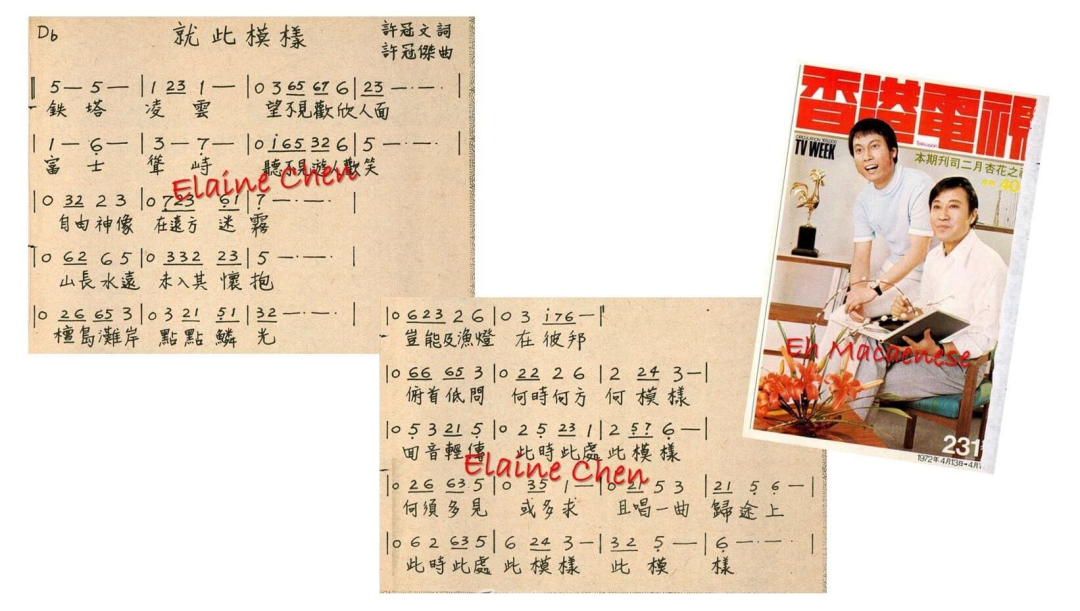 Db
就此模樣
許冠文詞
許冠傑曲
‖ 5 — 5 — | 1 23 1 — | 0 3 65 67 6 | 23 — · — · |
鉄塔 凌雲 望不見歡欣人面
1 — 6 — | 3 — 7 — | 0 i65 32 6 | 5 — · — · |
富士 聳峙 聽不見遊人歡笑
| 0 32 2 3 | 0 723 61 | 7 — · — · |
自由神像 在遠方 迷霧
| 0 62 6 5 | 0 332 23 | 5 — · — · |
山長水遠 未入其懷抱
| 0 26 65 3 | 0 3 21 51 | 32 — · — · |
檀島灘岸 點點鱗光
Elaine Chen
| 0 623 2 6 | 0 3 i76 — ‖
豈能及漁燈 在彼邦
| 0 66 65 3 | 0 22 2 6 | 2 24 3 — |
俯首低問 何時何方 何模樣
| 0 5 3 21 5 | 0 2 5 23 1 | 2 57 6 — |
回音輕傳 此時此處此模樣
| 0 26 63 5 | 0 35 1 — | 0 21 5 3 | 21 5 6 — |
何須多見 或多求 且唱一曲 歸途上
| 0 6 2 63 5 | 6 24 3 — | 32 5 — | 6 — · — · |
此時此處 此模樣 此模樣
Elaine Chen
香港電視
TV WEEK
本期刊司二月杏花之
40
Eh Macaenese
231
1972年4月13日-4月